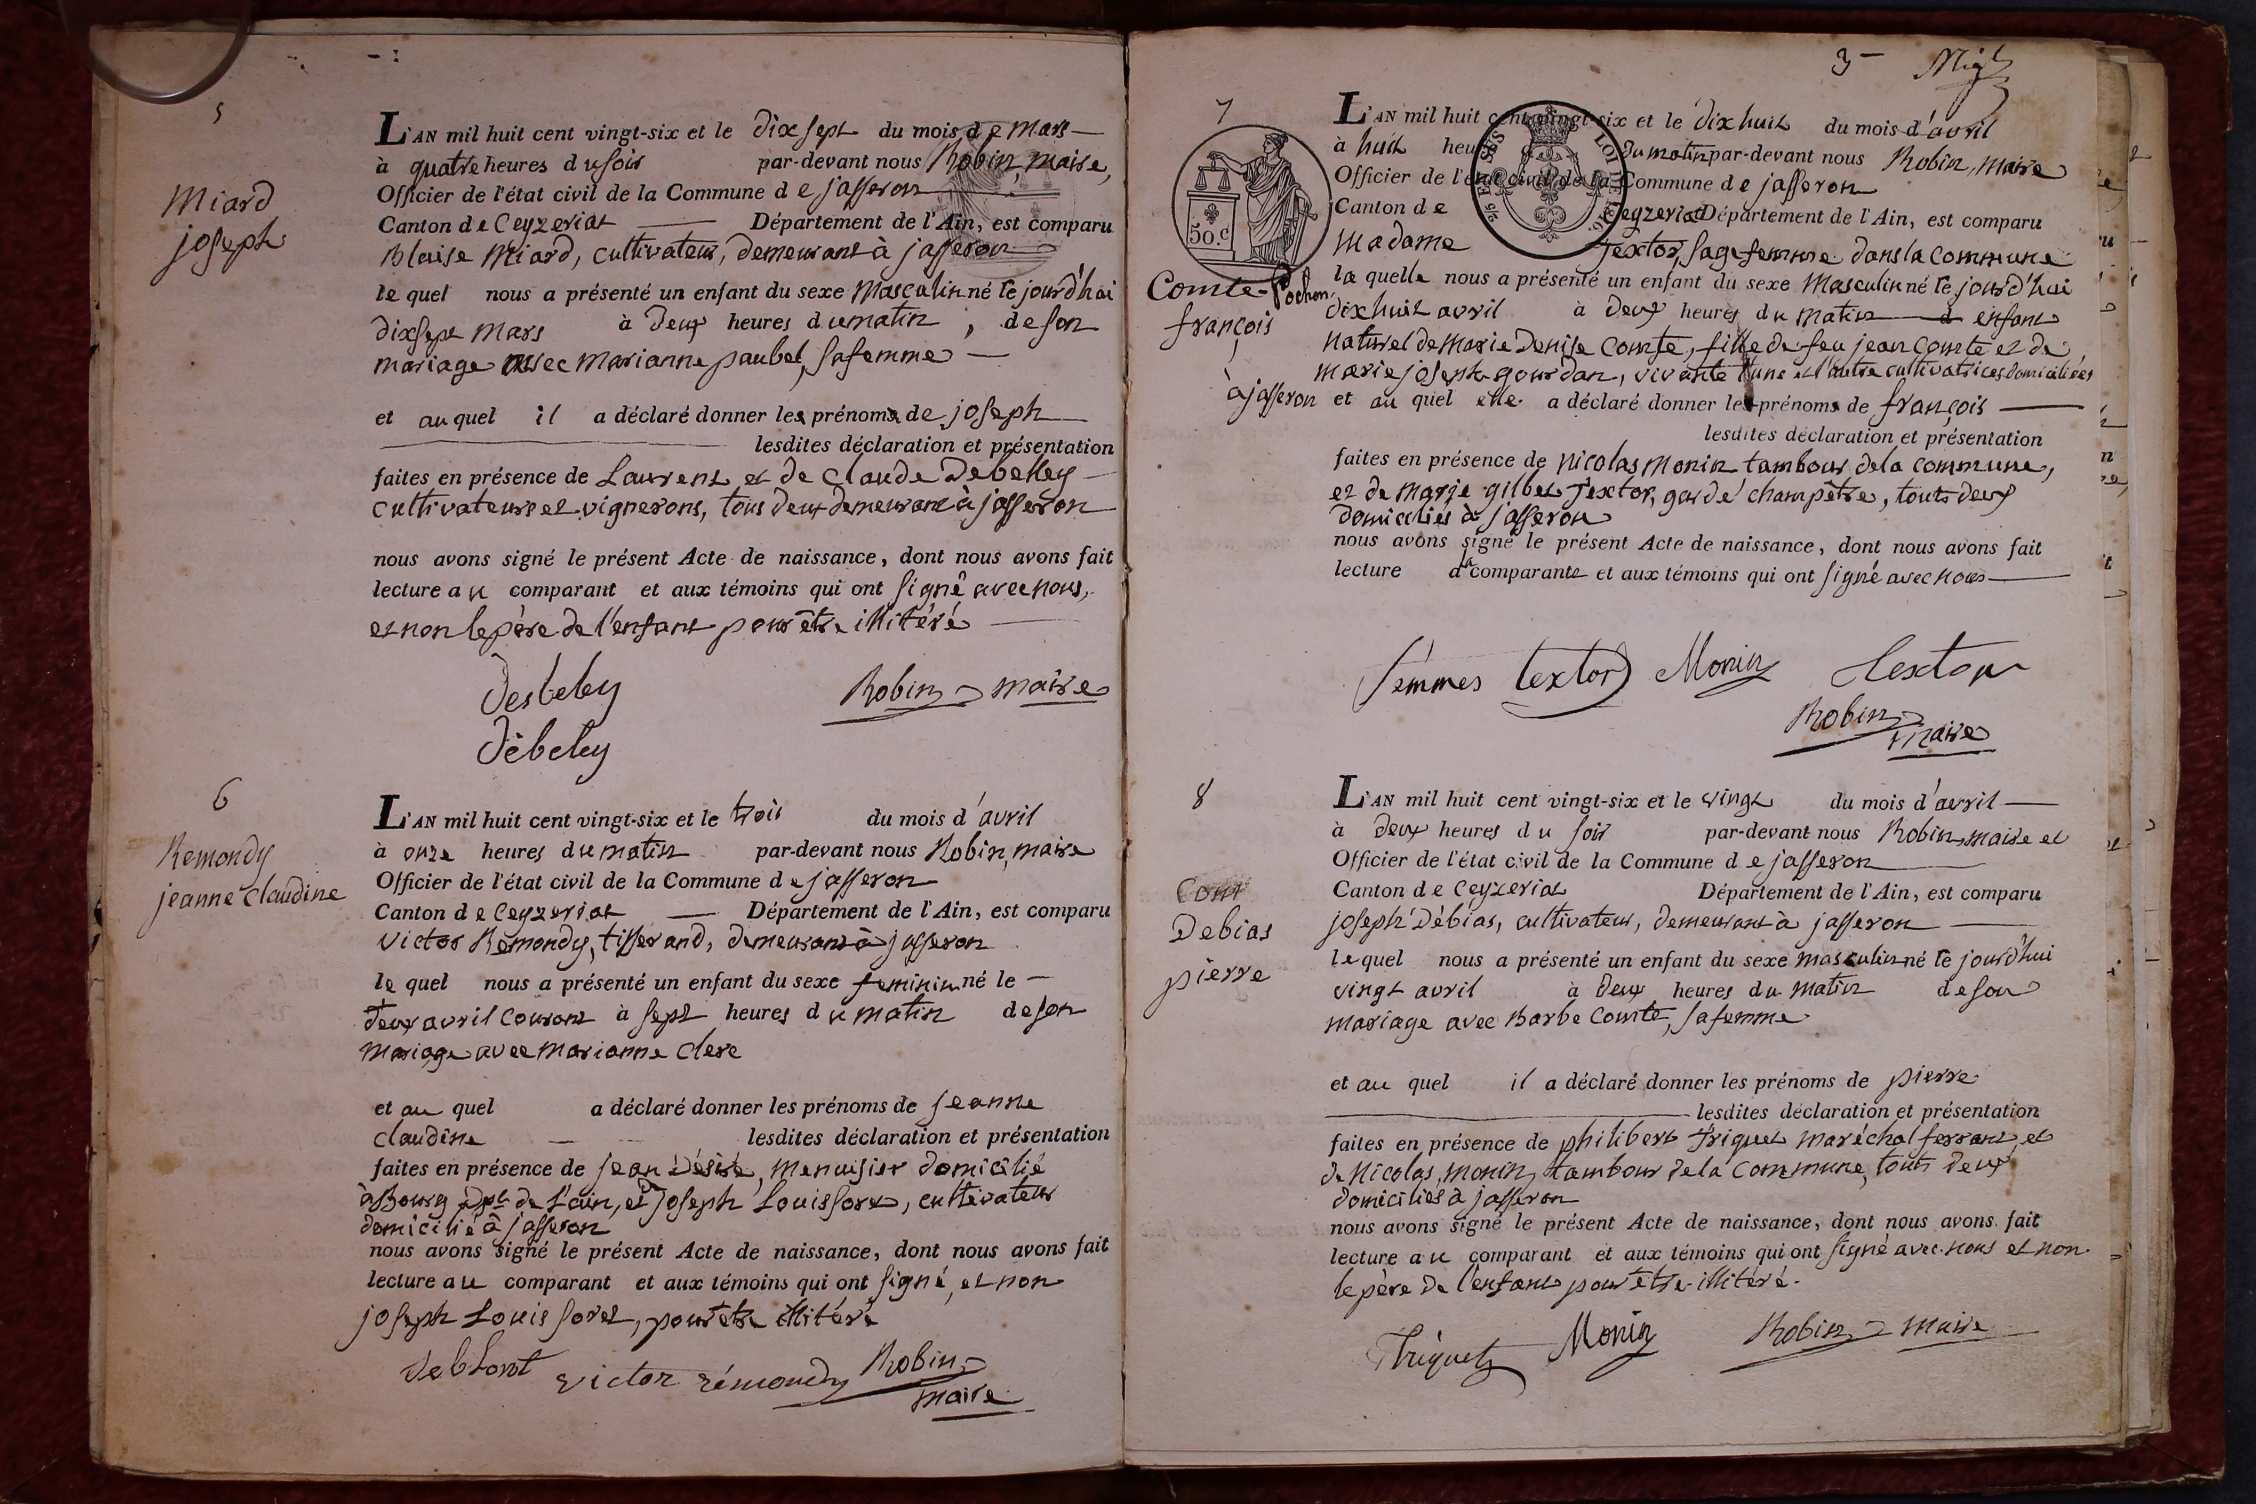 5
Miard
joseph
L'AN mil huit cent vingt-six et le dix sept du mois de mars
à quatre heures du soir par-devant nous Robin, maire,
Officier de l'état civil de la Commune de jasseron
Canton de Ceyzeriat Département de l'Ain, est comparu
Blaise Miard, cultivateur, demeurant à jasseron
le quel nous a présenté un enfant du sexe Masculin né le jourd'hui
dixsept mars à deux heures du matin, de son
mariage avec marianne paubel, sa femme
et au quel il a déclaré donner les prénoms de joseph
lesdites déclaration et présentation
faites en présence de Laurent et de Claude Debeley
cultivateurs et vignerons, tous deux demeurant à jasseron
nous avons signé le présent Acte de naissance, dont nous avons fait
lecture au comparant et aux témoins qui ont signé avec nous,
et non le père de l'enfant pour être illitéré
Desbeley Robin maire
Débeley
6
Remondy
jeanne claudine
L'AN mil huit cent vingt-six et le trois du mois d'avril
à onze heures du matin par-devant nous Robin, maire
Officier de l'état civil de la Commune de jasseron
Canton de Ceyzeriat Département de l'Ain, est comparu
victor Rémondy, tisserand, demeurant à jasseron
le quel nous a présenté un enfant du sexe feminin né le
deux avril courant à sept heures du matin de son
mariage avec marianne clerc
et au quel a déclaré donner les prénoms de jeanne
claudine lesdites déclaration et présentation
faites en présence de jean Désiré, menuisier domicilié
à Bourg dpt de l'ain, et joseph Louis foret, cultivateur
domicilié à jasseron
nous avons signé le présent Acte de naissance, dont nous avons fait
lecture au comparant et aux témoins qui ont signé, et non
joseph Louis foret, pour être illitéré
victor rémondy Robin
maire
3
7
50.c
Comte-Pochon
françois
L'AN mil huit cent vingt-six et le dix huit du mois d'avril
à huit heures du matin par-devant nous Robin, maire
Officier de l'état civil de la Commune de jasseron
Canton de Ceyzeriat Département de l'Ain, est comparu
madame Textor, sage femme dans la commune
la quelle nous a présenté un enfant du sexe Masculin né le jourd'hui
dixhuit avril à deux heures du matin enfant
naturel de marie denise Comte, fille de feu jean Comte et de
marie joseph gourdan, vivante l'une et l'autre cultivatrices domiciliées
à jasseron et au quel elle a déclaré donner les prénoms de françois
lesdites déclaration et présentation
faites en présence de Nicolas Monin tambour de la commune,
et de marie gilbet Textor, garde champêtre, touts deux
domiciliés à jasseron
nous avons signé le présent Acte de naissance, dont nous avons fait
lecture d comparante et aux témoins qui ont signé avec nous
femmes textor Monin Textor
Robin
maire
8
Debias
pierre
L'AN mil huit cent vingt-six et le vingt du mois d'avril
à deux heures du soir par-devant nous Robin, maire et
Officier de l'état civil de la Commune de jasseron
Canton de Ceyzeriat Département de l'Ain, est comparu
joseph Débias, cultivateur, demeurant à jasseron
lequel nous a présenté un enfant du sexe masculin né le jourd'hui
vingt avril à deux heures du matin de son
mariage avec Barbe Comte, sa femme
et au quel il a déclaré donner les prénoms de pierre
lesdites déclaration et présentation
faites en présence de philibert friquet maréchal ferrant, et
de Nicolas, monin, tambour de la commune, touts deux
domiciliés à jasseron
nous avons signé le présent Acte de naissance, dont nous avons fait
lecture au comparant et aux témoins qui ont signé avec nous et non
le père de l'enfant pour être illitéré.
Monin Robin maire